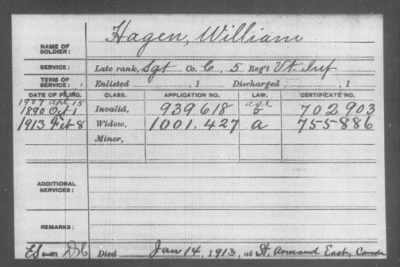 Hagen, William
NAME OF SOLDIER:
SERVICE: Late rank, Sgt Co. C, 5 Reg't Vt. Inf
TERM OF SERVICE: Enlisted , 1 Discharged , 1
DATE OF FILING. CLASS. APPLICATION NO. LAW. CERTIFICATE NO.
1907 Apl 15 age
1890 Oct 1 Invalid, 939618 702,903
1913 Feb 8 Widow, 1001.427 a 755886
Minor,
ADDITIONAL SERVICES:
REMARKS:
Died Jan 14, 1913, at St. Armand East, Canada